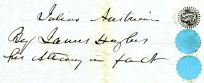 Julius Austrian
By James Hughes
his attorney in fact